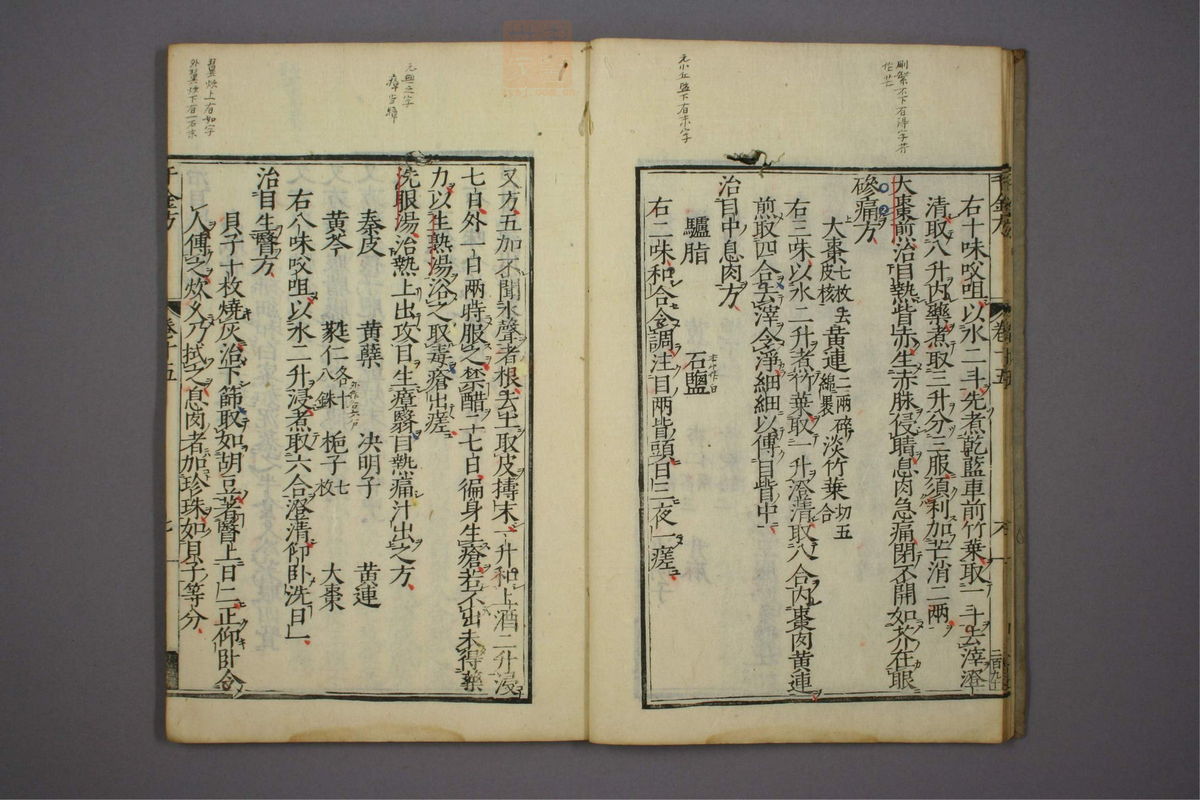 右十味㕮咀以水二斗先煮乾藍車前竹葉取一斗去滓澄
清取八升内藥煮取三升分三服須利加芒消二兩
大棗煎治目熱眥赤生赤脉侵睛息肉急痛閉不開如芥在眼
磣痛方
大棗七枚去皮核 黄連二兩碎綿裹 淡竹葉切五合
右三味以水二升煮竹葉取一升澄清取八合内棗肉黄連
煎取四合去滓令淨細細以傅目眥中
治目中息肉方
驢脂 石鹽
右二味和合令調注目兩眥頭日三夜一瘥
又方五加不聞水聲者根去土取皮擣末一升和上酒二升浸
七日外一日兩時服之禁醋二七日徧身生瘡若不出未得藥
力以生熟湯浴之取毒瘡出瘥
洗眼湯治熱上出攻目生瘴翳目熱痛汁出之方
秦皮 黄蘗 决明子 黄連
黄芩 蕤仁各十八銖 梔子七枚 大棗
右八味㕮咀以水二升浸煮取六合澄清仰卧洗日一
治目生瞖方
貝子十枚燒灰治下篩取如胡豆著瞖上日二正仰卧令
人傅之炊久乃拭之息肉者加珍珠如貝子等分
千金方 卷十五
七
元無之字
瘴当障